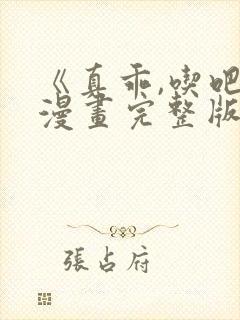 《真乖,喫吧
漫畫完整版
張占府